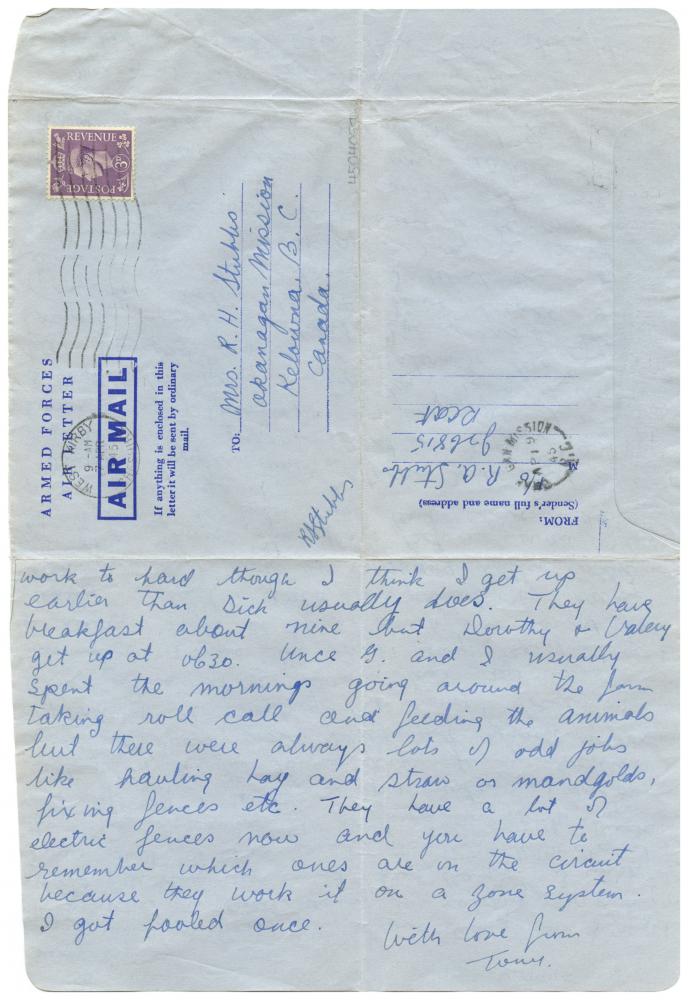 REVENUE
3D 3D
POSTAGE
ARMED FORCES
AIR LETTER
AIR MAIL
WEST KIRBY
9 - AM
If anything is enclosed in this
letter it will be sent by ordinary
mail.
TO:
Mrs. R. H. Stubbs
Okanagan Mission
Kelowna, B. C.
Canada.
Stubbs
4504052
FROM:
(Sender's full name and address)
R. A. Stubbs
926815
MISSION
work to hard though I think I get up
earlier than Dick usually does. They have
breakfast about nine but Dorothy & Valery
get up at 0630. Unce G. and I usually
spent the mornings going around the farm
taking roll call and feeding the animals
but there were always lots of odd jobs
like hauling hay and straw or mandgolds,
fixing fences etc. They have a lot of
electric fences now and you have to
remember which ones are on the circuit
because they work it on a zone system.
I got fooled once.
With love from
Tony.